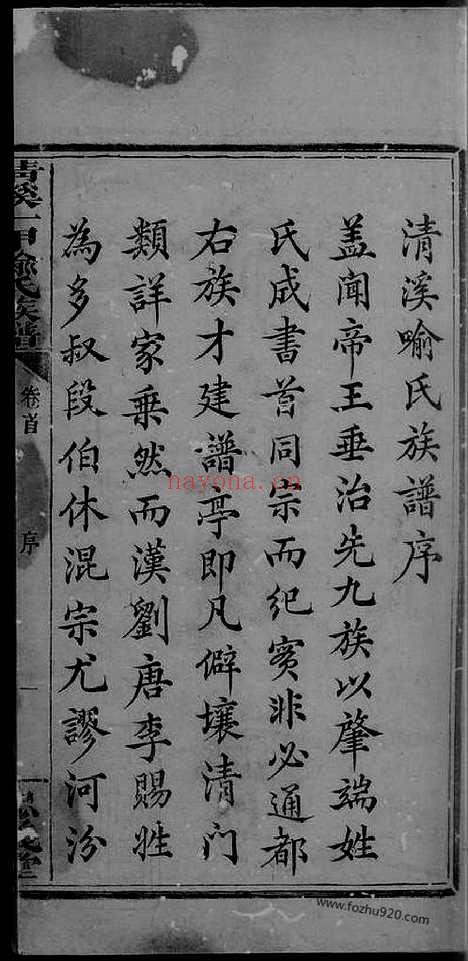 清溪喻氏族譜序
蓋聞帝王垂治先九族以肇端姓
氏成書首同宗而紀實非必通都
右族才建譜亭即凡僻壤清門
類詳家乗然而漢劉唐李賜姓
為多叔段伯休混宗尤謬河汾
清溪一甲喻氏族譜
卷首
序
一
nayona.cn
www.fozhu920.com